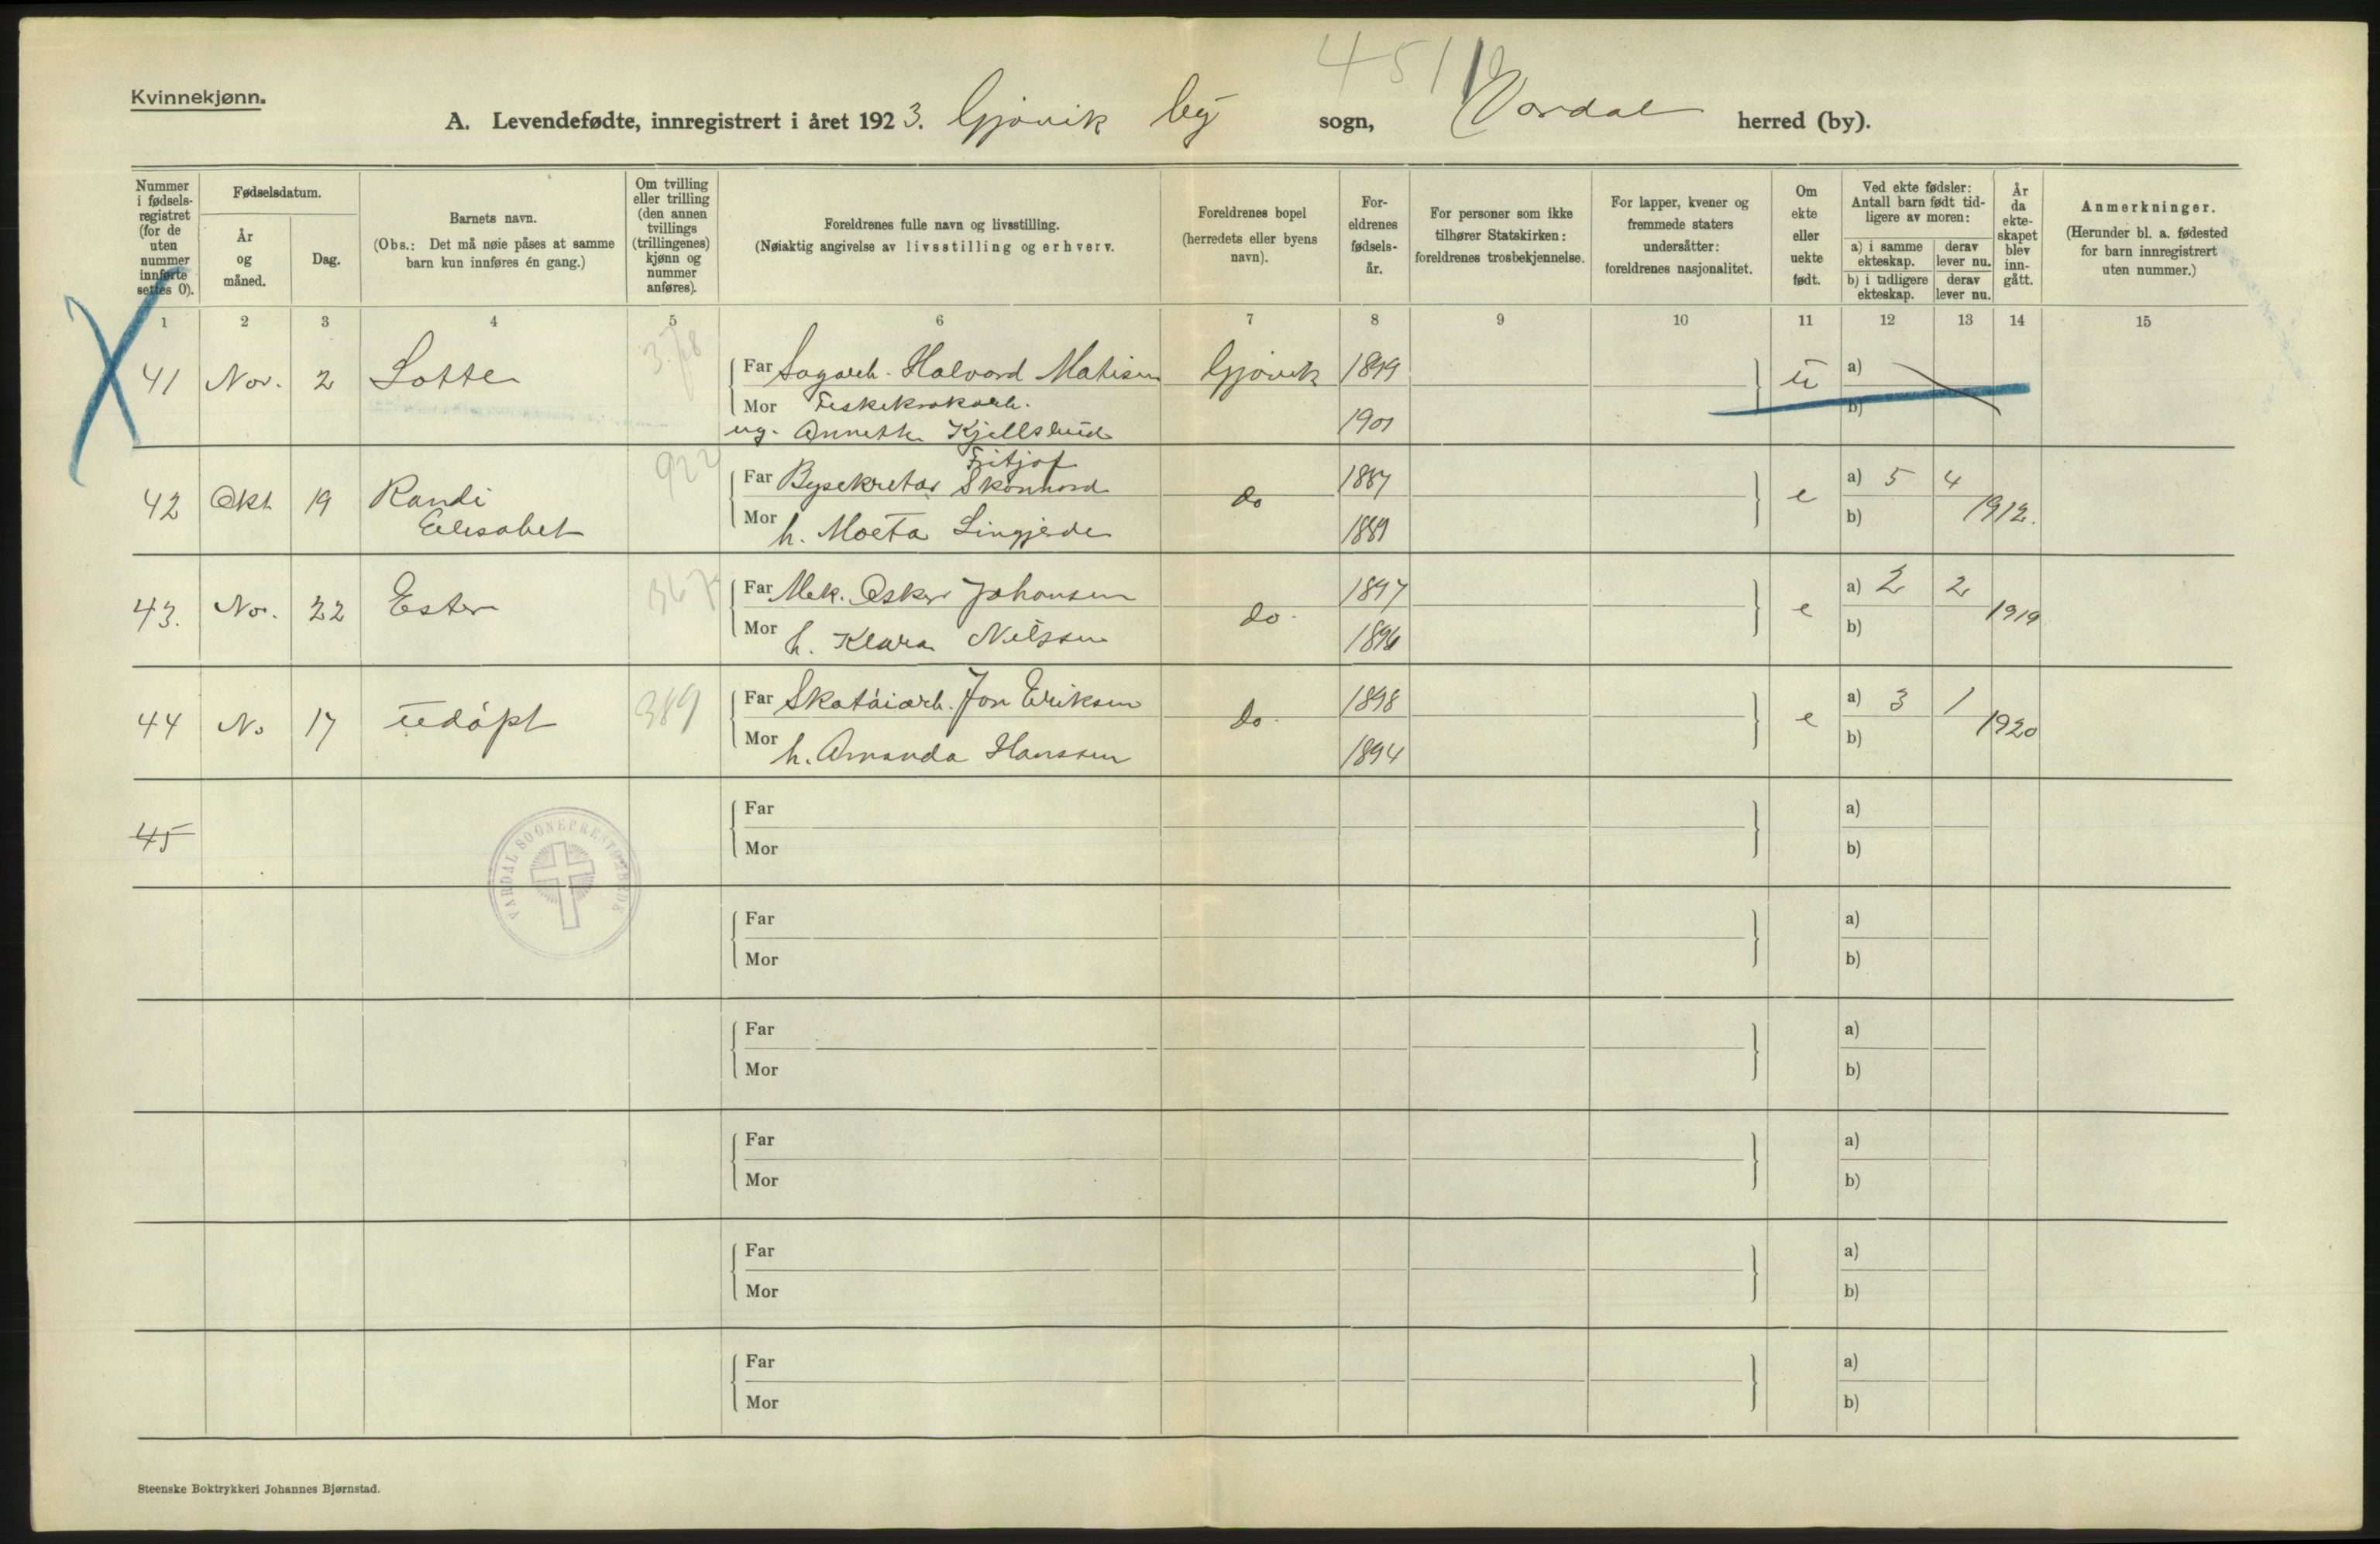 4511
Kvinnekjønn.
A. Levendefødte, innregistrert i året 1923. Gjøvik by sogn, Vardal herred (by).
Nummer i fødsels-registret (for de uten nummer innførte settes 0).
Fødselsdatum.
År og måned.
Dag.
Barnets navn.
(Obs.: Det må nøie påses at samme barn kun innføres én gang.)
Om tvilling eller trilling (den annen tvillings (trillingenes) kjønn og nummer anføres).
Foreldrenes fulle navn og livsstilling.
(Nøiaktig angivelse av livsstilling og erhverv.
Foreldrenes bopel (herredets eller byens navn).
For-eldrenes fødsels-år.
For personer som ikke tilhører Statskirken: foreldrenes trosbekjennelse.
For lapper, kvener og fremmede staters undersåtter: foreldrenes nasjonalitet.
Om ekte eller uekte født.
Ved ekte fødsler: Antall barn født tid-ligere av moren:
a) i samme ekteskap.
derav lever nu.
b) i tidligere ekteskap.
derav lever nu.
År da ekte-skapet blev inn-gått.
Anmerkninger.
(Herunder bl. a. fødested for barn innregistrert uten nummer.)
1 2 3 4 5 6 7 8 9 10 11 12 13 14 15
41 Nov. 2 Lotte Far Sagarb. Halvard Matisen Gjøvik 1899 u a)
Mor Fiskekrokarb. b)
ug. Annette Kjellslud 1901
42 Okt 19 Randi Far Bysekretær Fritjof Skønnord do 1887 e a) 5 4 1912.
Elisabet Mor h. Moeta Lingjerde 1889 b)
43. Nov. 22 Ester 367 Far Mek. Oskar Johansen do. 1897 e a) 2 2 1919
Mor h. Klara Nilssen 1896 b)
44 No 17 udøpt 389 Far Skotøiarb. Jon Eriksen do. 1898 e a) 3 1 1920
Mor h. Amanda Hanssen 1894 b)
45 Far a)
Mor b)
VARDAL SOGNEPRESTEMBEDE
Far a)
Mor b)
Far a)
Mor b)
Far a)
Mor b)
Far a)
Mor b)
Far a)
Mor b)
Steenske Boktrykkeri Johannes Bjørnstad.